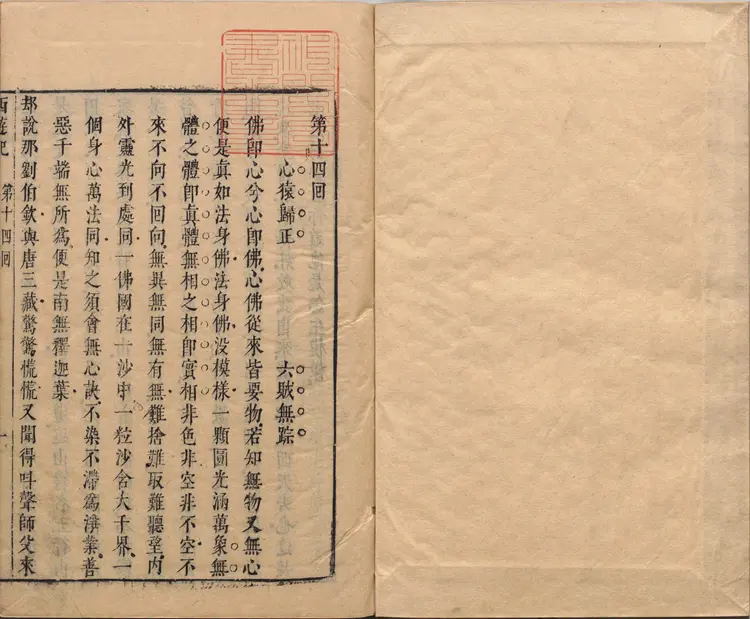 第十四回
心猿歸正　六賊無踪
佛卽心兮心卽佛心佛從來皆要物若知無物又無心
便是真如法身佛法身佛没模樣一顆圓光涵萬象無
體之體卽真體無相之相卽實相非色非空非不空不
來不向不回向無異無同無有無難捨難取難聽望内
外靈光到處同一佛國在一沙中一粒沙含大千界一
個身心萬法同知之須會無心訣不染不滯爲淨業善
惡千端無所爲便是南無釋迦葉
却說那劉伯欽與唐三藏驚驚慌慌又聞得呌聲師父來
西遊記　第十四回　一